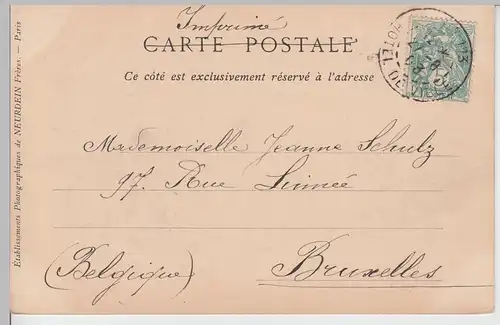 Imprimé
CARTE POSTALE
Ce côté est exclusivement réservé à l'adresse
Mademoiselle Jeanne Schulz
97. Rue Linnée
(Belgique)
Bruxelles
Établissements Photographiques de NEURDEIN Frères. — Paris